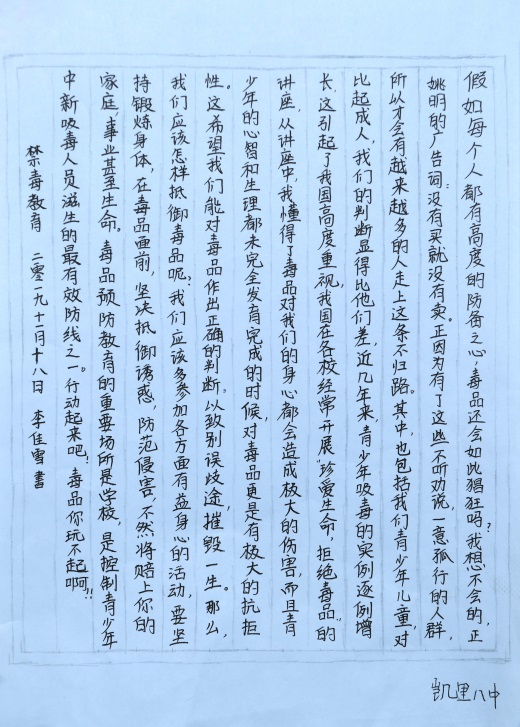 假如每个人都有高度的防备之心,毒品还会如此猖狂吗?我想不会的,正
姚明的广告词:没有买就没有卖。正因为有了这些不听劝说,一意孤行的人群,
所以才会有越来越多的人走上这条不归路。其中,也包括我们青少年儿童,对
比起成人,我们的判断显得比他们差,近几年来,青少年吸毒的实例逐例增
长,这引起了我国高度重视,我国在各校经常开展“珍爱生命,拒绝毒品”的
讲座,从讲座中,我懂得了毒品对我们的身心都会造成极大的伤害,而且青
少年的心智和生理都未完全发育完成的时候,对毒品更是有极大的抗拒
性。这希望我们能对毒品作出正确的判断。以致别误歧途,摧毁一生。那么,
我们应该怎样抵御毒品呢?我们应该多参加各方面有益身心的活动,要坚
持锻炼身体,在毒品面前,坚决抵御诱惑,防范侵害,不然将赔上你的
家庭,事业甚至生命。毒品预防教育的重要场所是学校,是控制青少年
中新吸毒人员滋生的最有效防线之一。行动起来吧?毒品你玩不起啊!!
禁毒教育 二零一九十一月十八日 李佳雪书
凯里八中